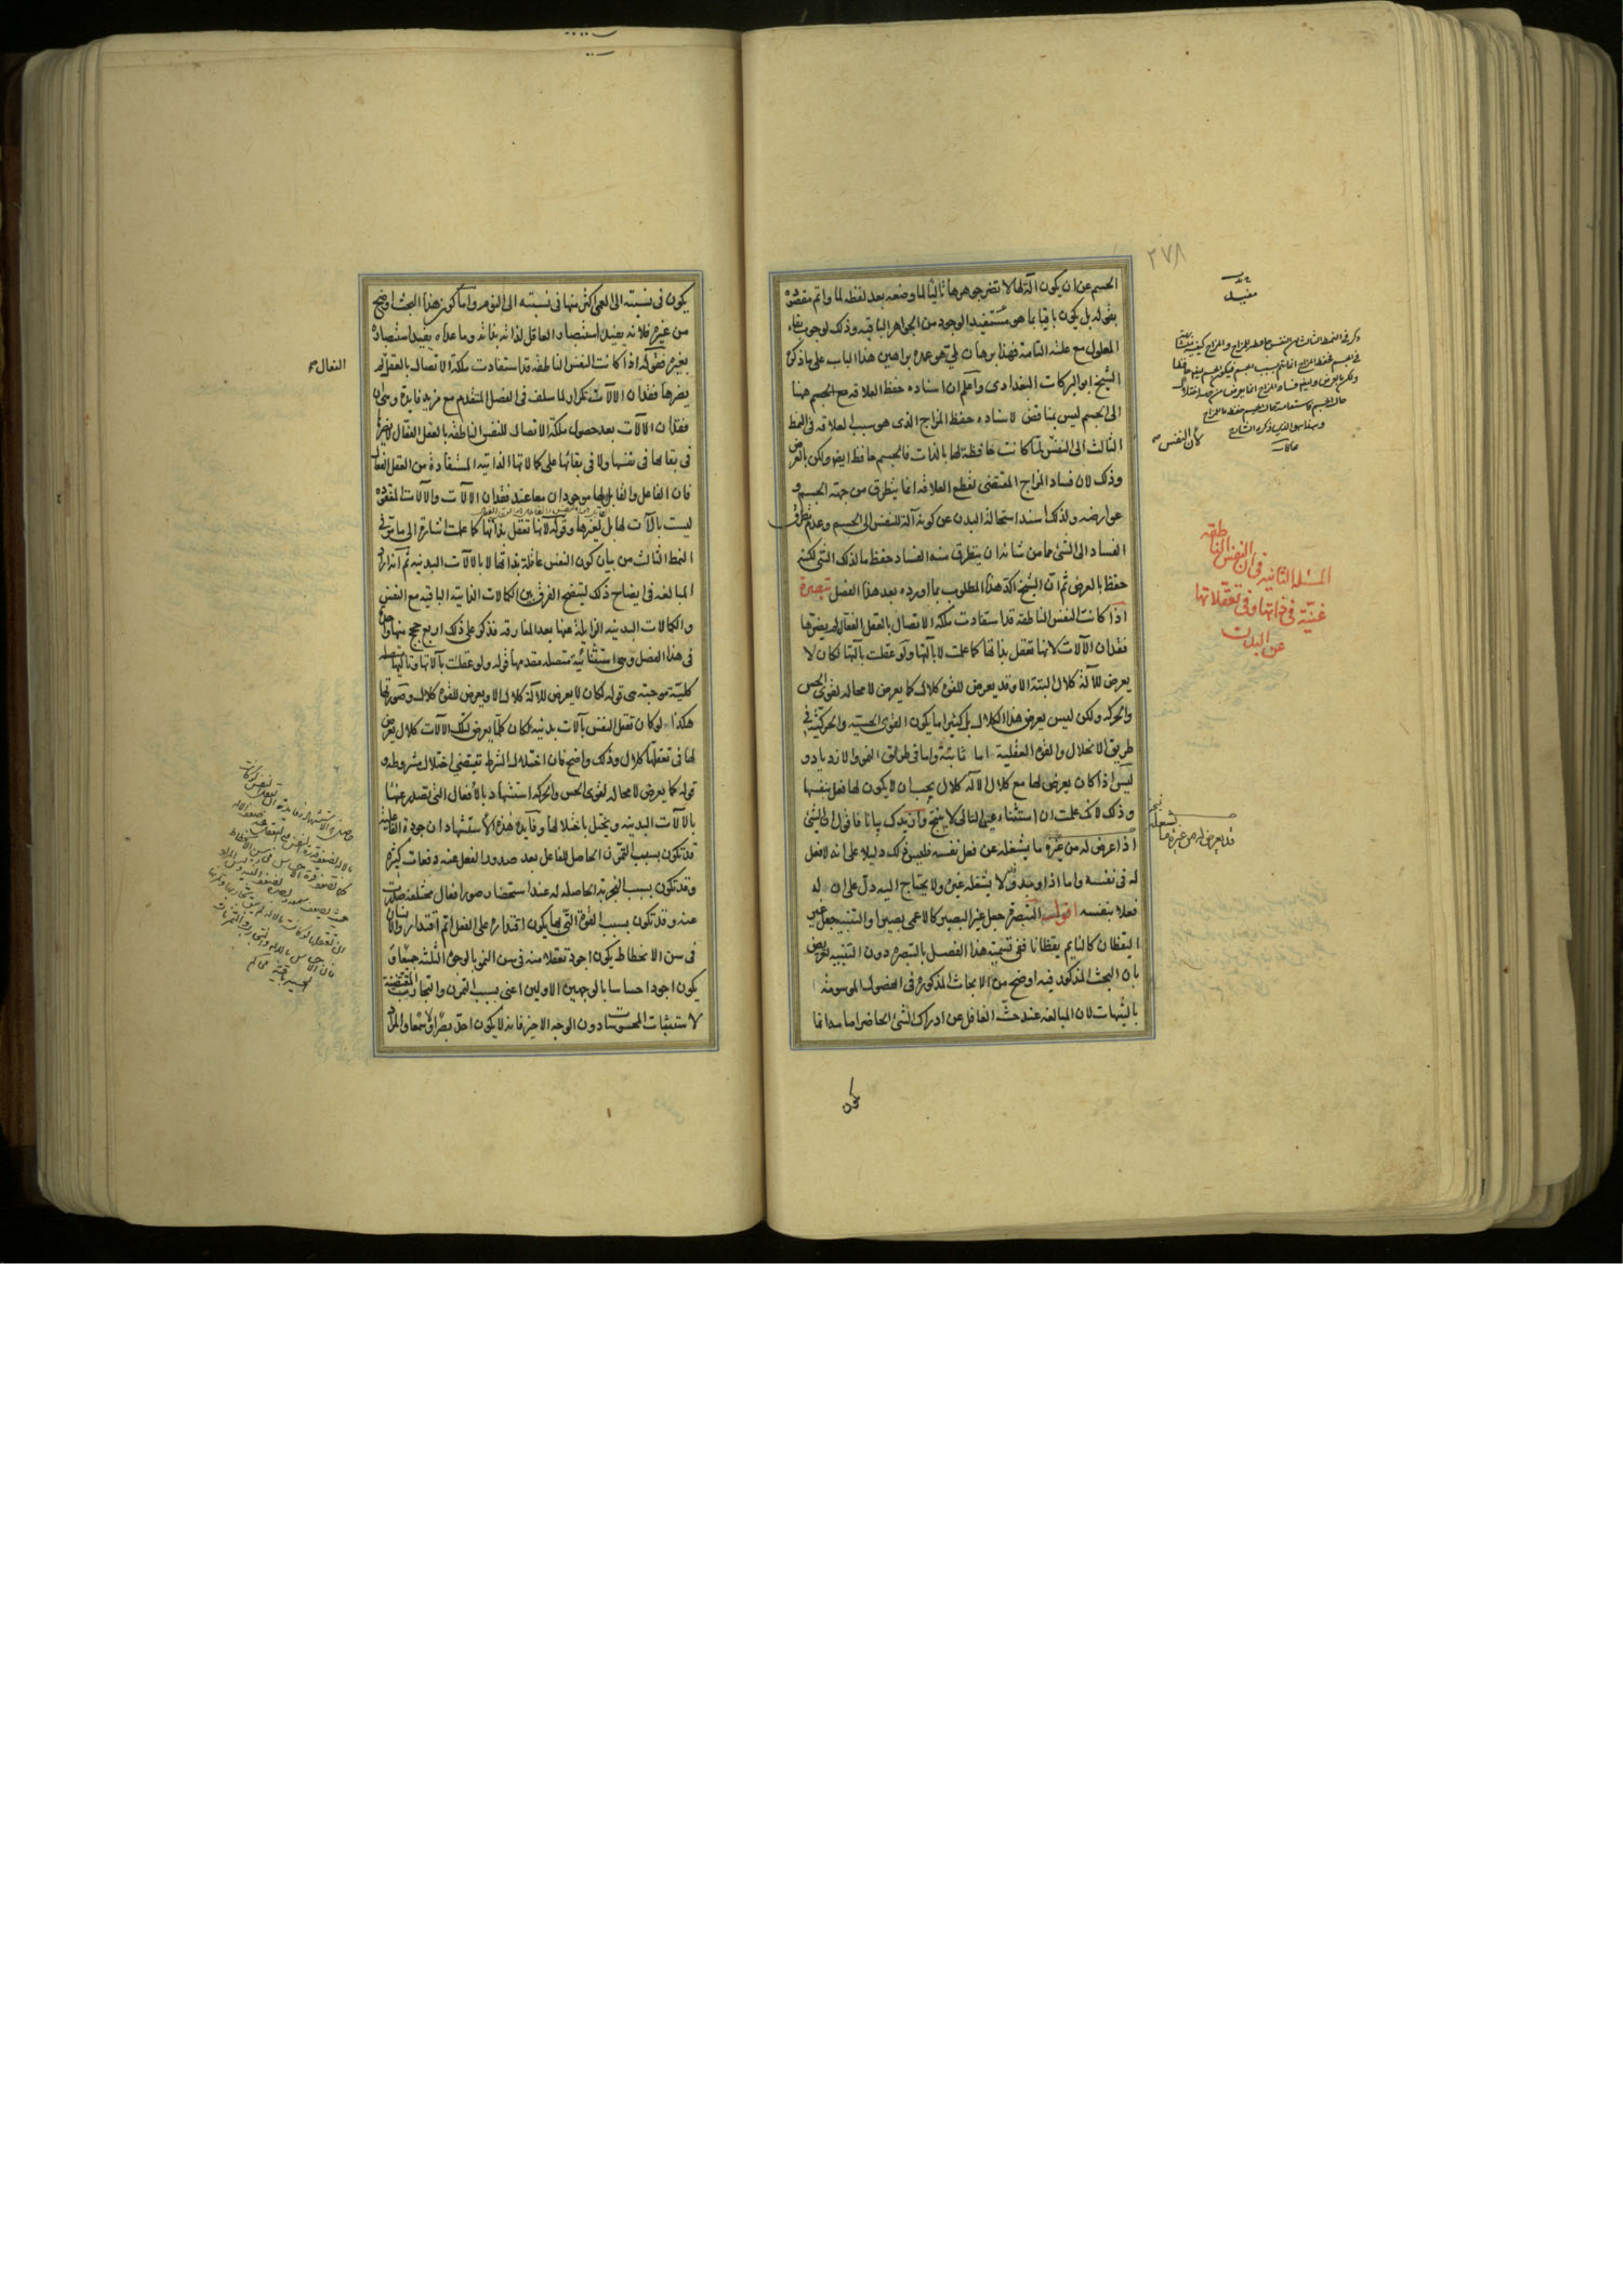 ٢٧٨
الجسم عن ان يكون آلة لها لا تضر جوهرها تاليا لما وضعه بعد لفظه لما واتم مقصوده
بقوله بل يكون باقيا بما هو مستفيد الوجود من الجواهر الباقيه وذلك لوجوب بقاء
المعلول مع علته التامة فهذا برهان لمي هو عمدة براهين هذا الباب على ما ذكره
الشيخ ابو البركات البغدادى واعلم ان اسناده حفظ العلاقه مع الجسم ههنا
الى الجسم ليس بمناقض لاسناده حفظ المزاج الذى هو سبب العلاقه فى النمط
الثالث الى النفس لما كانت حافظة لها بالذات فالجسم حافظ ايضا ولكن بالعرض
وذلك لان فساد المزاج المقتضى لقطع العلاقه انما يتطرق من جهة الجسم و
عوارضه ولذلك اسند استحالة البدن عن كونه آلة للنفس الى الجسم وعدم تطرق
الفساد الى الشئ مما من شانه ان يتطرق منه الفساد حفظ ما لذلك الشئ لكنه
حفظ بالعرض ثم ان الشيخ اكد هذا المطلوب بما اورده بعد هذا الفصل تبصرة
اذا كانت النفس الناطقه قد استفادت ملكة الاتصال بالعقل الفعال لم يضرها
فقدان الآلات لانها تعقل بذاتها كما علمت لا بآلتها ولو عقلت بآلتها لكان لا
يعرض للآلة كلال البتة الا وقد يعرض للقوة كلال كما يعرض لا محاله لقوى الحس
والحركه ولكن ليس يعرض هذا الكلال بل كثيرا ما يكون القوى الحسيه والحركية فى
طريق الانحلال والقوة العقلية اما ثابتة واما فى طريق النمو والازدياد و
ليس اذا كان يعرض لها مع كلال الآله كلال يجب ان لا يكون لها فعل بنفسها
وذلك لانك علمت ان استثناء عين التالى لا ينتج وازيدك بيانا فاقول الى الشئ
اذا عرض له من غيره ما يشغله عن فعل نفسه فليس ذلك دليلا على انه لا فعل
له فى نفسه واما اذا وجد وقد لا يشغله غيره ولا يحتاج اليه دل على ان له
فعلا بنفسه اقول التبصرة جعل غير البصير كالاعمى بصيرا والتنبيه جعل غير
اليقظان كالنايم يقظانا ففى تسمية هذا الفصل بالتبصره دون التنبيه تعريض
بان البحث المذكور فيه اوضح من الابحاث المذكورة فى الفصول الموسومة
بالتنبيهات لان المبالغه عند حث الغافل عن ادراك الشئ الحاضر امامه انما
المسئلة الثانيه فى ان النفس الناطقه
غنية فى ذاتها وفى تعقلاتها
عن البدن
لان النفس
يكون فى نسبته الى العمى اكثر منها فى نسبته الى النوم واما كون هذا البحث اوضح
من غيره فلانه يفيد استبصار العاقل لذاته بذاته وما عداه يفيد استبصاره
بغيره فقوله اذا كانت النفس الناطقه قد استفادت ملكة الاتصال بالعقل لم
الفعال
يضرها فقدان الآلات تكرار لما سلف فى الفصل المتقدم مع مزيد فايدة وهى ان
فقدان الآلات بعد حصول ملكة الاتصال للنفس الناطقه بالعقل الفعال لا يضرها
فى بقائها فى نفسها ولا فى بقائها على كمالاتها الذاتيه المستفادة من العقل الفعال
فان الفاعل والقابل لها موجودان معا عند فقدان الآلات والآلات المفقوده
ليست بآلات لها بل لغيرها وقوله لانها تعقل بذاتها كما علمت اشارة الى ما مر فى
النمط الثالث من بيان كون النفس عاقلة بذاتها لا بالآلات البدنيه ثم انه اراد
المبالغه فى ايضاح ذلك ليتضح الفرق بين الكمالات الذاتيه الباقيه مع النفس
والكمالات البدنيه الزايلة عنها بعد المفارقه فذكر على ذلك اربع حجج منها واحدة
فى هذا الفصل وهى استثنائية متصله مقدمها قوله ولو عقلت بآلاتها وتاليها متصله
كلية موجبه هى قوله لكان لا يعرض للآلة كلال الا ويعرض للقوة كلال وصورتها
هكذا لو كان تعقل النفس بآلات بدنيه لكان كلما يعرض لتلك الآلات كلال يعرض
لها فى تعقلها كلال وذلك واضح فان اختلال الشرط تقتضى اختلال مشروطه و
قوله كما يعرض لا محاله لقوى الحس والحركه استشهاد بالافعال التى تصدر عنها
بالآلات البدنيه ويختل باختلالها وفايدة هذه الاستشهاد ان جودة الفاعلية
قد تكون بسبب التمرن الحاصل للفاعل بعد صدور الفعل عنه دفعات كثيرة
وقد تكون بسبب التجربة الحاصله له عند استحضار صور افعال مختلفة صدرت
عنه وقد تكون بسبب القوة التى بها يكون اقتداره على الفعل اتم اقتدارا والانسان
فى سن الانحطاط يكون اجود تعقلا منه فى سن النمو بالوجوه الثلثة جميعا وقد
يكون اجود احساسا بالوجهين الاولين اعنى بسبب التمرن والتجارب المقتضية
لاستثبات المحسوسات دون الوجه الاخير فانه لا يكون احد بصرا ولا سمعا والمراد